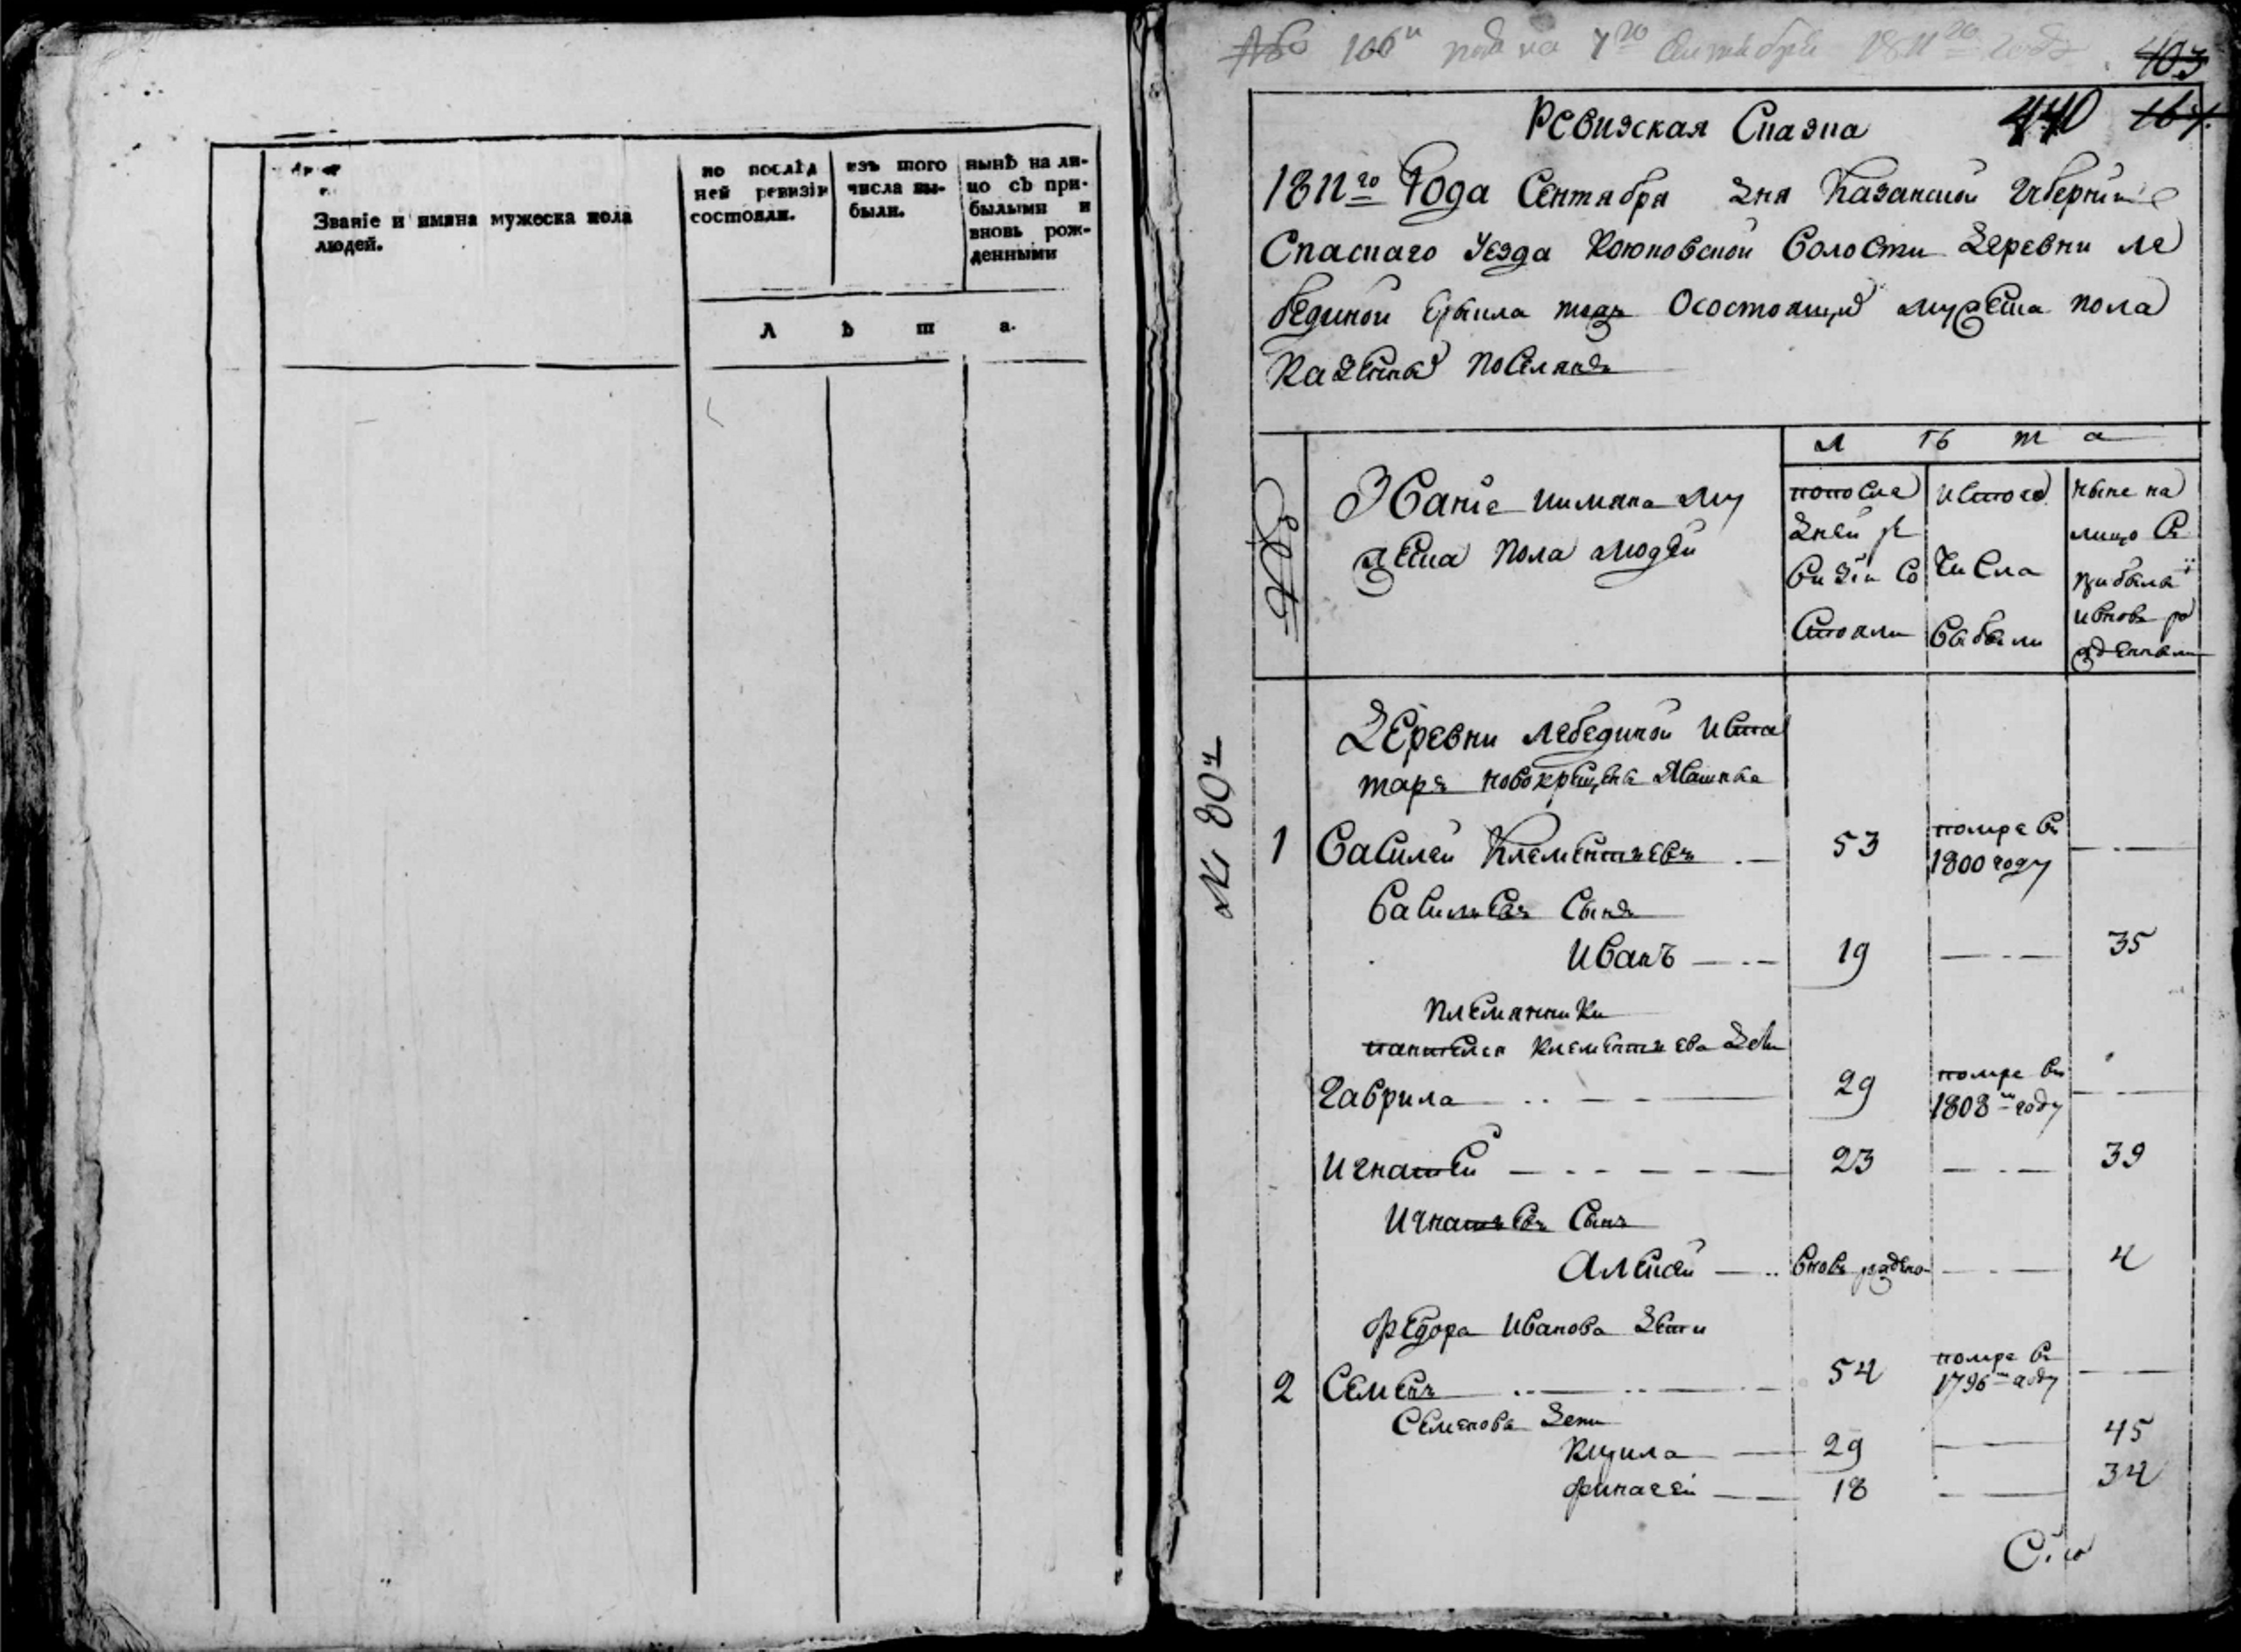 Званіе и имяна мужеска пола
людей.
по послѣд
ней ревизіи
состояли.
изъ того
числа вы-
были.
нынѣ на ли-
цо съ при-
былыми и
вновь рож-
денными
Л ѣ т а.
сентября 1811го года
403
Ревизская Сказка 440 167.
1811го Года Сентября дня Казанской Губернии
Спаскаго Уезда Кокюковской Волости Деревни Ле
бединой Состоящих мужеска пола
Казенных поселянъ
№
Звание иимяна му
жеска пола людей
л ѣ т а
попосле
дней ре
визіи со
стояли
истого
числа
выбыли
ныне на
лицо съ
прибылы
ивновь ро
жденными
Деревни Лебединой иста
таръ новокрещены
1 Василей Клементьевъ 53 помре въ
1800 году
Васильевъ Сынъ
Иванъ 19 35
племянники
Клементьева дети
Гаврила 29 помре въ
1808м году
Игнатей 23 39
Игнатьевъ Сынъ
Алексей вновь рожденъ 4
Федора Иванова дети
2 Семенъ 54 помре въ
1796м году
Семенова дети
Кирила 29 45
18 34